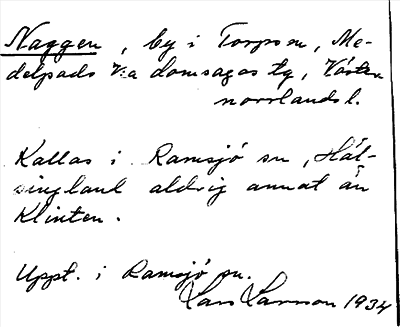 Naggen, by i Torps sn, Me-
delpads V:a domsagas tg, Väster-
norrlands l.
Kallas i Ramsjö sn, Häl-
singland aldrig annat än
Klinten.
Uppt. i Ramsjö sn.
Lars Larsson 1934